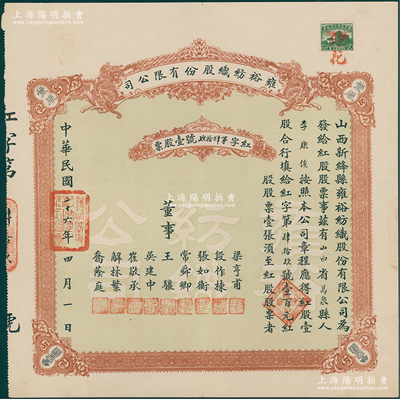 上海阳明拍卖
雍裕紡織股份有限公司
紅字第肆拾玖號壹股票
山西新絳縣雍裕紡織股份有限公司為
發給紅股股票事茲有山西省萬泉縣人
李康侯按照本公司章程應得紅股壹
股合行填給紅字第肆拾玖號壹百元紅
股股票壹張須至紅股股票者
董事
梁亨甫
段作棟
張如衡
常舜卿
王驤
吳建中
崔敬承
解林繁
喬蔭庭
中華民國二十六年四月一日
紅字第
號